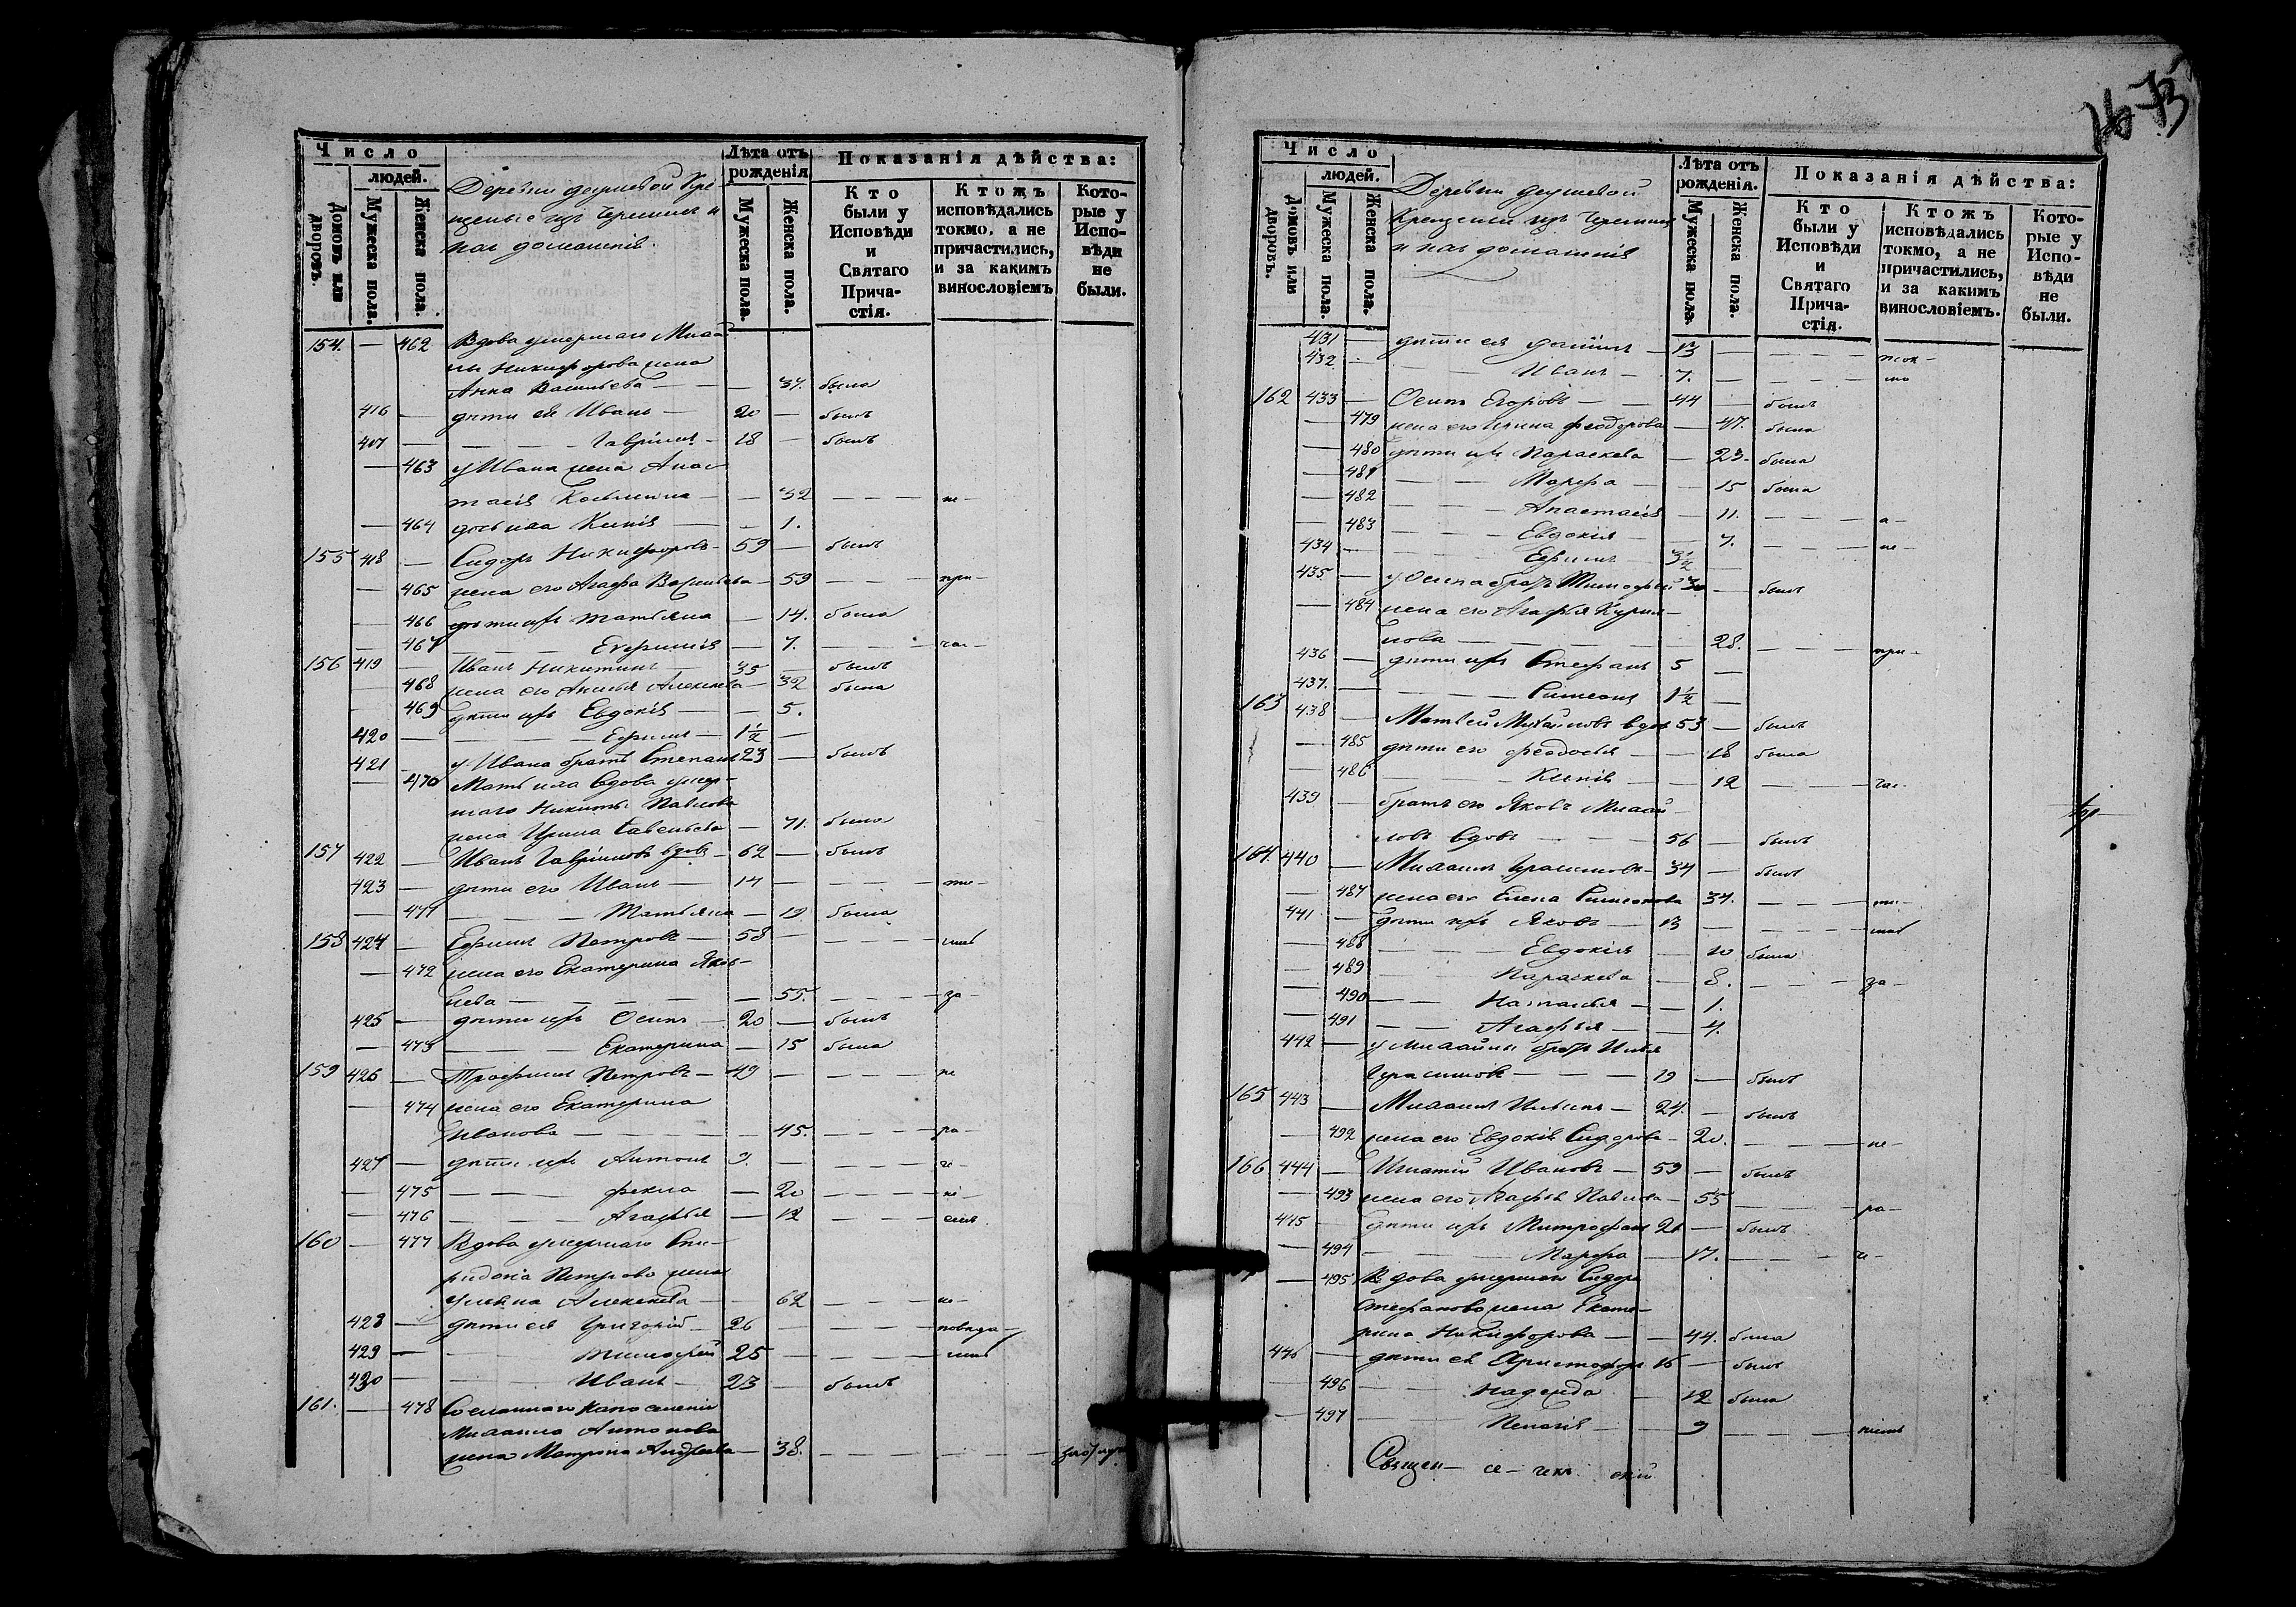 Число
людей.
Домовъ или дворовъ.
Мужеска пола.
Женска пола.
Деревни
домашнія.
Лѣта отъ рожденія
Мужеска пола.
Женска пола.
Показанія дѣйства:
Кто были у Исповѣди и Святаго Причастія.
Ктожъ исповѣдались токмо, а не причастились, и за какимъ винословіемъ
Которые у Исповѣди не были.
154. — 462 Вдова умершаго
Никифорова жена
Анна Васильева — — 37. была
416 — дѣти ея Иванъ — 20 — былъ
417 — — — Гавріилъ — 18 — былъ
— 463 у Ивана жена Анас
тасія — — 32 — — — не —
— 464 дочь Ксенія — — 1.
155 418 — Сидоръ Никифоровъ — 59 — былъ
— 465 жена его Агафья Васильева — 59 — — — при —
— 466 дѣти ихъ Татьяна — 14. была
— 467 — — Евфимія — 7. — — — час —
156 419 — Иванъ Никитинъ — 35 — былъ
— 468 жена его Алексѣева — 32 была
— 469 дѣти ихъ Евдокія — — 5.
420 — — — Ефимъ — 1½ —
421 — у Ивана братъ Степанъ 23 — былъ
— 470 Мать вдова умер
шаго Никиты Павлова
жена Ирина Савельева — 71. была
157 422 — Иванъ Гавриловъ вдовъ — 62 — былъ
423 — дѣти его Иванъ — 14 — — — —
— 471 — — — Татьяна — 19 была
158 424 — Ефимъ Петровъ — 58 — — — —
— 472 жена его Екатерина Яков—
лева — — — — — 55. — — — за —
425 — дѣти ихъ Осипъ — 20 — былъ
— 473 — — — Екатерина — 15 была
159 426 — Трофимъ Петровъ — 49 — — — — не
— 474 жена его Екатерина
Иванова — — — — 45. — — — ра —
427 — дѣти ихъ Антонъ 9. — — — —
— 475 — — — Фекла — 20 — — —
— 476 — — — Агафья — 12 — — —
160 — 477 Вдова умершаго Спи—
ридона Петрова жена
Ульяна Алексѣева — 62 — — — ис —
428 — дѣти ея Григорій — 26 — — — — повѣда —
429 — — — Тимофей 25 — — — —
430 — — — Иванъ — 23 — былъ
161. — 478 Сосланнаго на поселеніе
Михаила Антонова
жена Матрона Андреева — 38. — — —
Число
людей.
Домовъ или дворовъ.
Мужеска пола.
Женска пола.
Деревни
домашнія
Лѣта отъ рожденія.
Мужеска пола.
Женска пола.
Показанія дѣйства:
Кто были у Исповѣди и Святаго Причастія.
Ктожъ исповѣдались токмо, а не причастились, и за какимъ винословіемъ.
Которые у Исповѣди не были.
431 — дѣти ея — 13 — — — —
432 — — — Иванъ — 7. — — — —
162 433 — Осипъ Егоровъ — — 44 — былъ
— 479 жена его Ирина Феодорова — 47. была
— 480 дѣти ихъ Параскева — 23. была
— 481 — — Марфа — — 15 была
— 482 — — — Анастасія — 11. — — — а —
— 483 — — — Евдокія — — 7. — — — не —
434 — — — — Ефимъ — 3½ —
435 — у Осипа братъ Тимофей 30 — былъ
— 484 жена его Агафья Кирил—
лова — — — — — 28. — — — при —
436 — дѣти ихъ Стефанъ 5 —
437. — — — — Симеонъ 1½ —
163 438 — Матвей Михайловъ вдовъ 53 — былъ
— 485 дѣти его Феодосія — — 18 была
— 486 — — — Ксенія — — 12 — — — час.
439 — братъ его Яковъ Михай
ловъ вдовъ — — 56 — былъ
164. 440 — Михаилъ Герасимовъ — 34 — былъ
— 487 жена его Елена Симеонова 37. — — —
441 — дѣти ихъ Яковъ — 13 — — — —
— 488 — — Евдокія — 10 была
— 489 — — Параскева — 8. — — — за —
— 490 — — Наталья — — 1.
— 491 — — Агафья — — 4.
442 — у Михаила братъ
Герасимовъ — — — 19 — былъ
165. 443 — Михаилъ — 24. — былъ
— 492 жена его Евдокія Сидорова — 20. — — — не —
166 444 — Игнатій Ивановъ — 59 — былъ
— 493 жена его Агафья Павлова — 55 — — — ра —
445 — дѣти ихъ Митрофанъ 21 — былъ
— 494 — — — Марфа — 17. — — —
— 495 Вдова умершаго Сидора
Стефанова жена Екате—
рина Никифорова — — 44. была
446 — дѣти ея Христофоръ 16 — былъ
— 496 — — Надежда — 12 была
— 497 — — Пелагія — — 9 — — —
Священ—